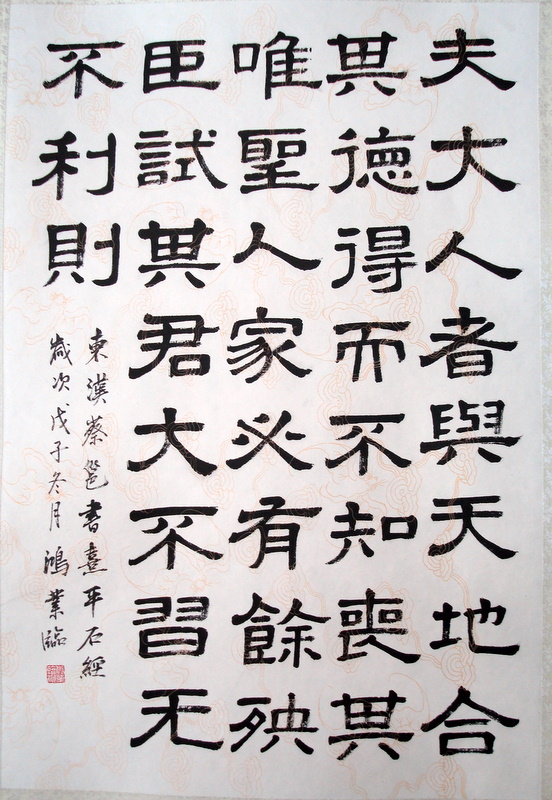 夫大人者與天地合
其德得而不知喪其
唯聖人家必有餘殃
臣試其君大不習无
不利則
東漢蔡邕書熹平石經
歲次戊子冬月鴻業臨